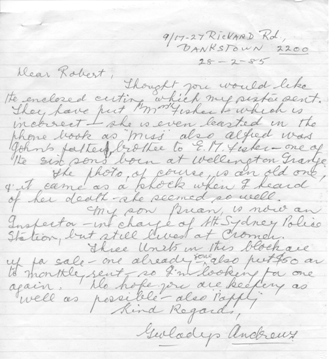 9/17-27 Rickard Rd,
BANKSTOWN 2200
28-2-85
Dear Robert,
Thought you would like
the enclosed cutting which my sister sent.
They have put "Mrs" Fisher & which is
incorrect - she is even leasted in the
phone book as "Miss" also Alfred was
John's father, brother to E.M. Fisher - one of
the six sons born at Wellington Grange
The photo, of course, is an old one,
& it came as a shock when I heard
of her death - she seemed so well.
My son Brian, is now an
Inspector - in charge of Nt Sydney Police
Station, but still lives at Cromer.
Three Units in this block are
up for sale - one already, also put too on
to monthly rent - so I'm looking for one
again. We hope you are keeping as
well as possible - also Poppy,
Kind Regards,
Gwladys Andrews